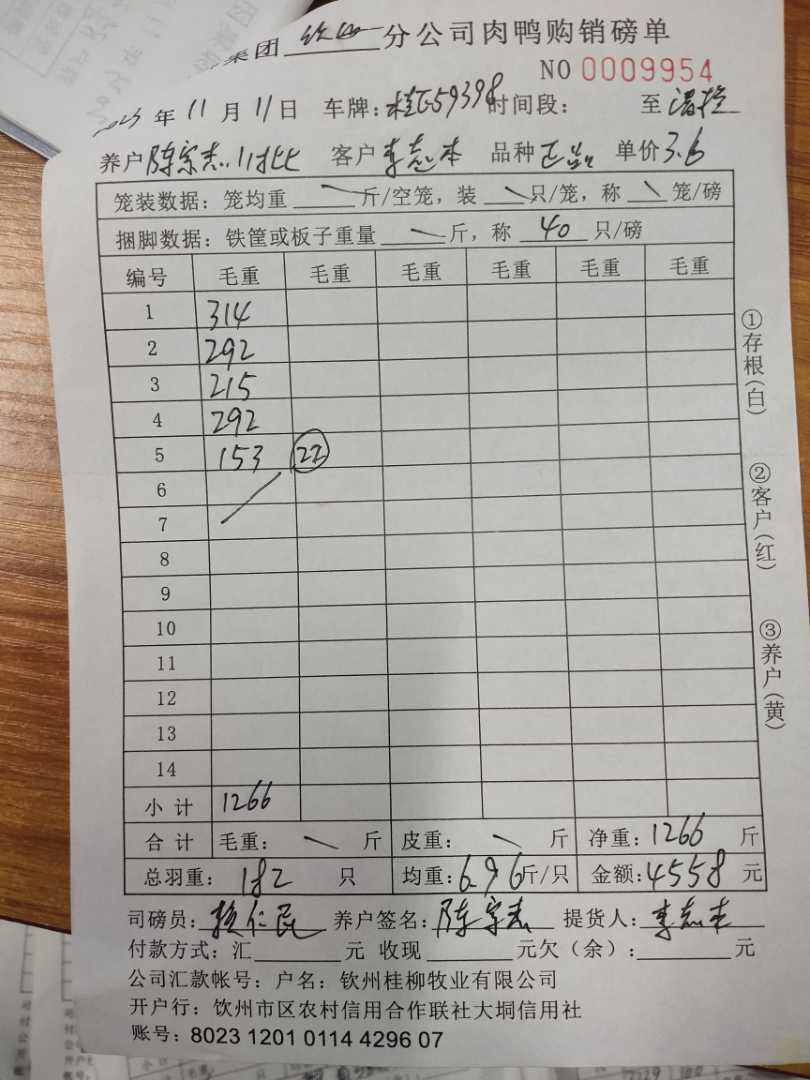 集团 钦州 分公司肉鸭购销磅单
NO 0009954
2023 年 11 月 11 日 车牌: 桂E59398 时间段: 至
养户 陈宗志 11批 客户 李志本 品种 单价 3.6
笼装数据: 笼均重 斤/空笼, 装 只/笼, 称 笼/磅
捆脚数据: 铁筐或板子重量 斤, 称 40 只/磅
编号 毛重 毛重 毛重 毛重 毛重 毛重
1 314
2 292
3 215
4 292
5 153 22
6
7
8
9
10
11
12
13
14
小计 1266
合计 毛重: 斤 皮重: 斤 净重: 1266 斤
总羽重: 182 只 均重: 6.96 斤/只 金额: 4558 元
司磅员: 养户签名: 陈宗志 提货人: 李志本
付款方式: 汇 元 收现 元欠（余）: 元
公司汇款帐号: 户名: 钦州桂柳牧业有限公司
开户行: 饮州市区农村信用合作联社大垌信用社
账号: 8023 1201 0114 4296 07
①存根(白)
②客户(红)
③养户(黄)